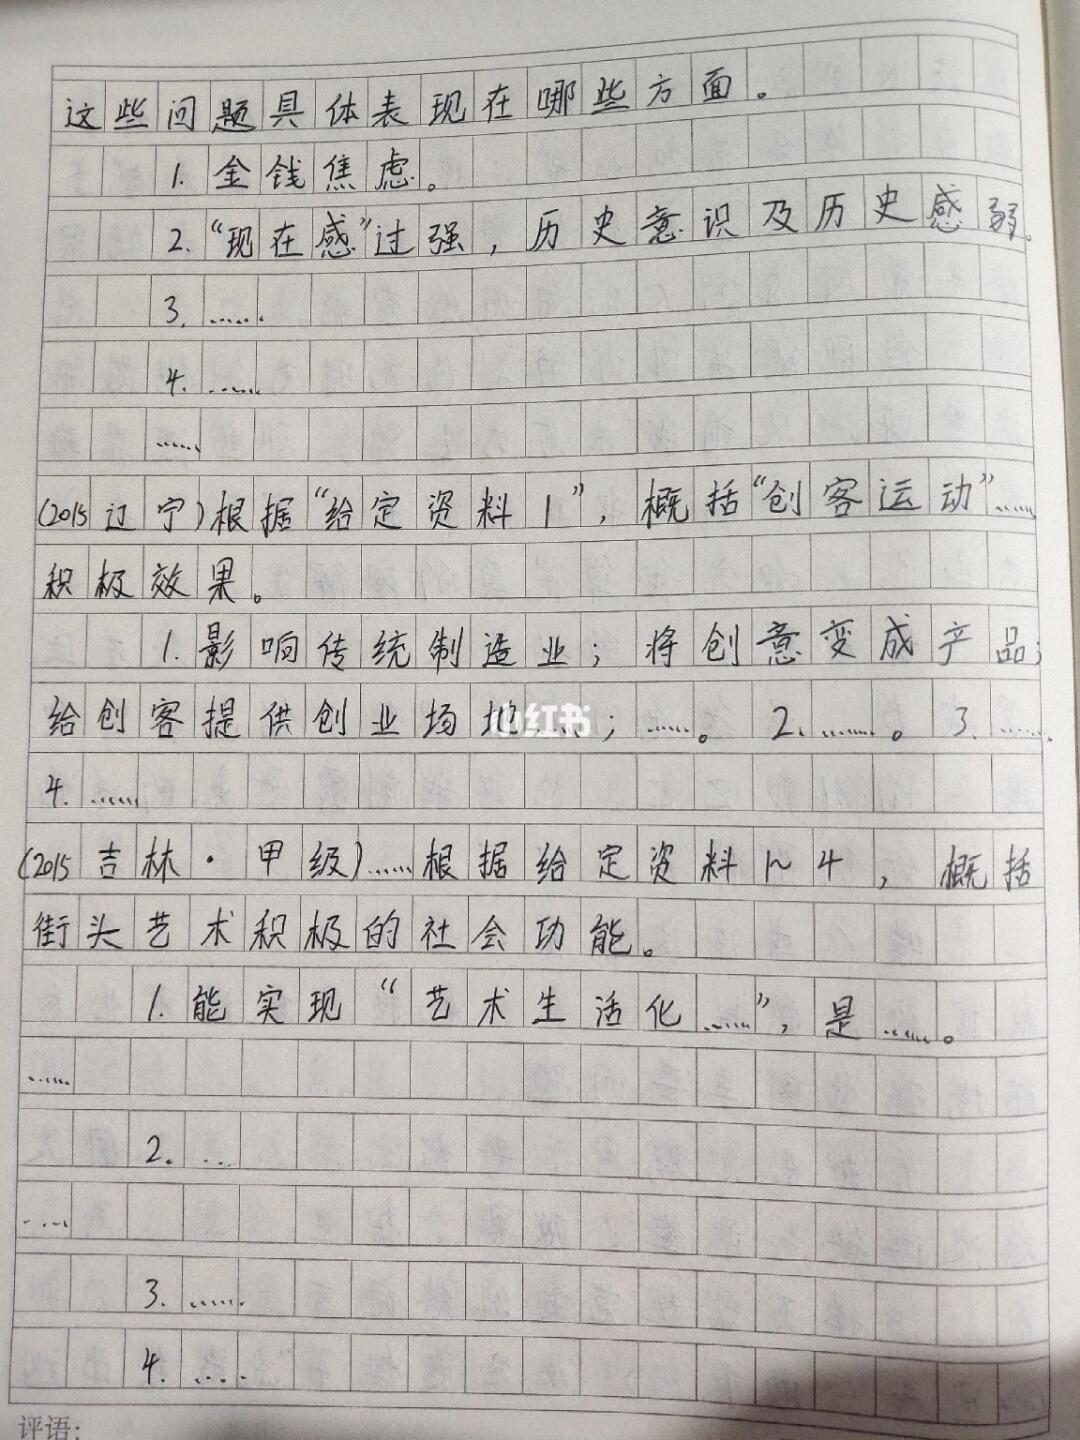 这些问题具体表现在哪些方面。
1. 金钱焦虑。
2. “现在感”过强，历史意识及历史感弱。
3. ……
4. ……
……
(2015辽宁)根据“给定资料1”，概括“创客运动”……
积极效果。
1. 影响传统制造业；将创意变成产品；
给创客提供创业场地……；……。2. ……。3. ……
小红书
4. ……
(2015吉林·甲级)……根据给定资料1~4，概括
街头艺术积极的社会功能。
1. 能实现“艺术生活化……”，是……。
……
2. …
……
3. ……
4. ……
评语：